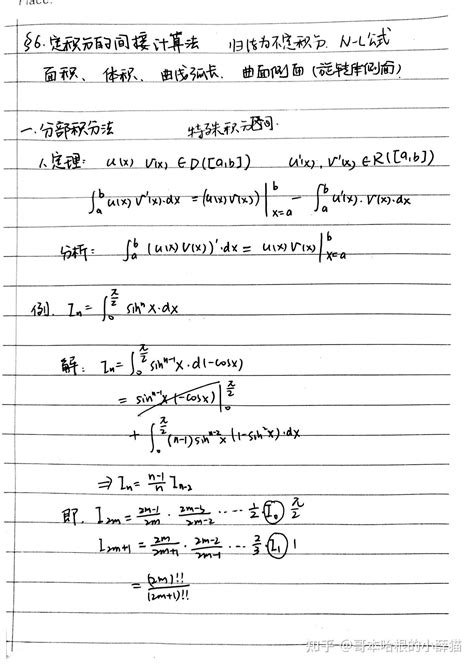 §6.定积分的间接计算法 归结为不定积分. N-L公式
面积、体积、曲线弧长、曲面侧面(旋转体侧面)
一.分部积分法 特殊积分区间.
1.定理: u(x) v(x) ∈ D([a,b]) u'(x), v'(x) ∈ R([a,b])
∫_a^b u(x) v'(x)·dx = (u(x) v(x)) |_{x=a}^b - ∫_a^b u'(x)·v(x)·dx
分析: ∫_a^b (u(x) v(x))'·dx = u(x) v(x) |_{x=a}^b
例. I_n = ∫_0^{π/2} sin^n x·dx
解: I_n = ∫_0^{π/2} sin^{n-1} x·d(-cosx)
= sin^{n-1} x (-cosx) |_0^{π/2}
+ ∫_0^{π/2} (n-1) sin^{n-2} x (1-sin^2 x)·dx
⇒ I_n = \frac{n-1}{n} I_{n-2}
即. I_{2m} = \frac{2m-1}{2m} · \frac{2m-3}{2m-2} ··· \frac{1}{2} I_0 \frac{π}{2}
I_{2m+1} = \frac{2m}{2m+1} · \frac{2m-2}{2m-1} ··· \frac{2}{3} I_1 1
= \frac{(2m)!!}{(2m+1)!!}
知乎 @哥本哈根的小薛猫